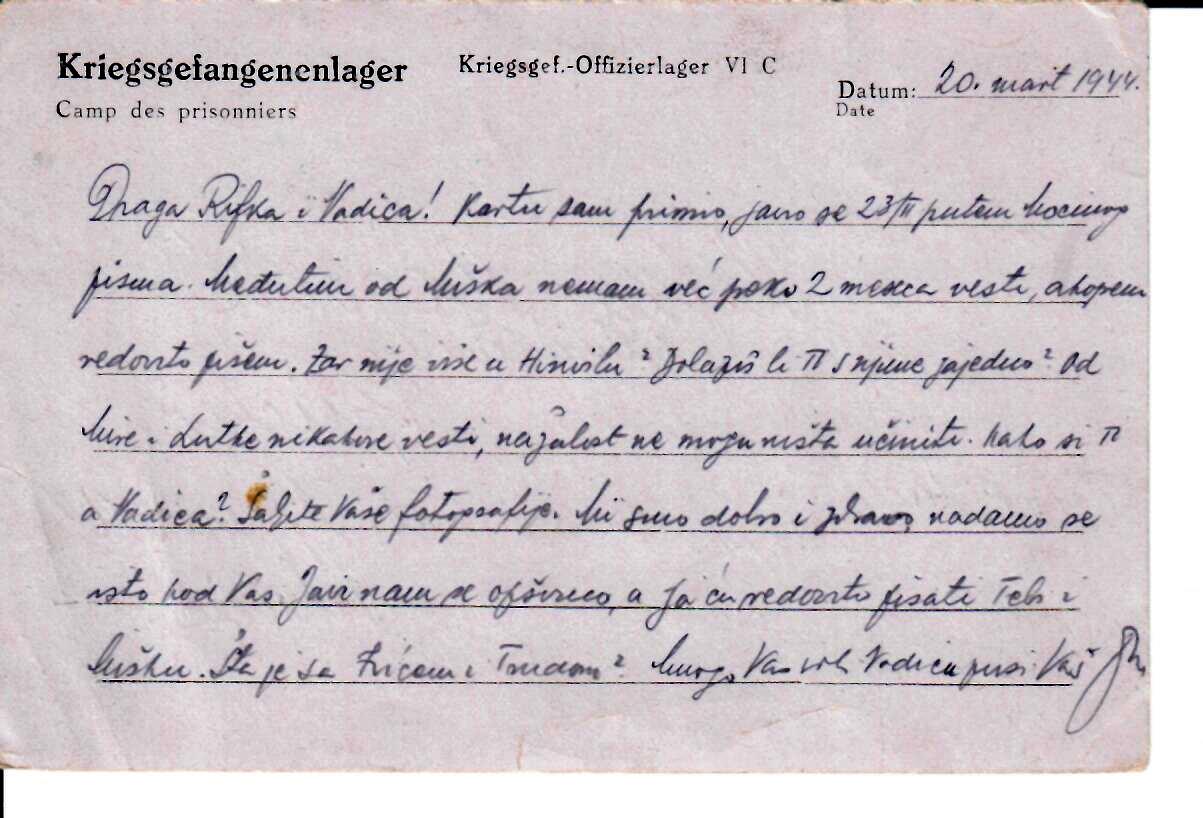 Kriegsgefangenenlager
Kriegsgef.-Offizierlager VI C
Camp des prisonniers
Datum: 20. mart 1944.
Date
Draga Rifka i Vadica! Kartu sam primio, javio se 23/II putem
pisma. Međutim od Miška nemam već preko 2 meseca vesti, a
redovito pišem. Zar nije više u ? Dolaziš li Ti s njime zajedno? Od
Mire i Lutke nikakove vesti, nažalost ne mogu ništa učiniti. Kako si Ti
a Vadica? Šaljite Vaše fotografije. Mi smo dobro i zdravo, nadamo se
isto kod Vas. Javi nam se opširno, a ja ću redovito pisati Tebi i
Mišku. Šta je sa i ? Mnogo Vas voli Vadicu pusi Vaš